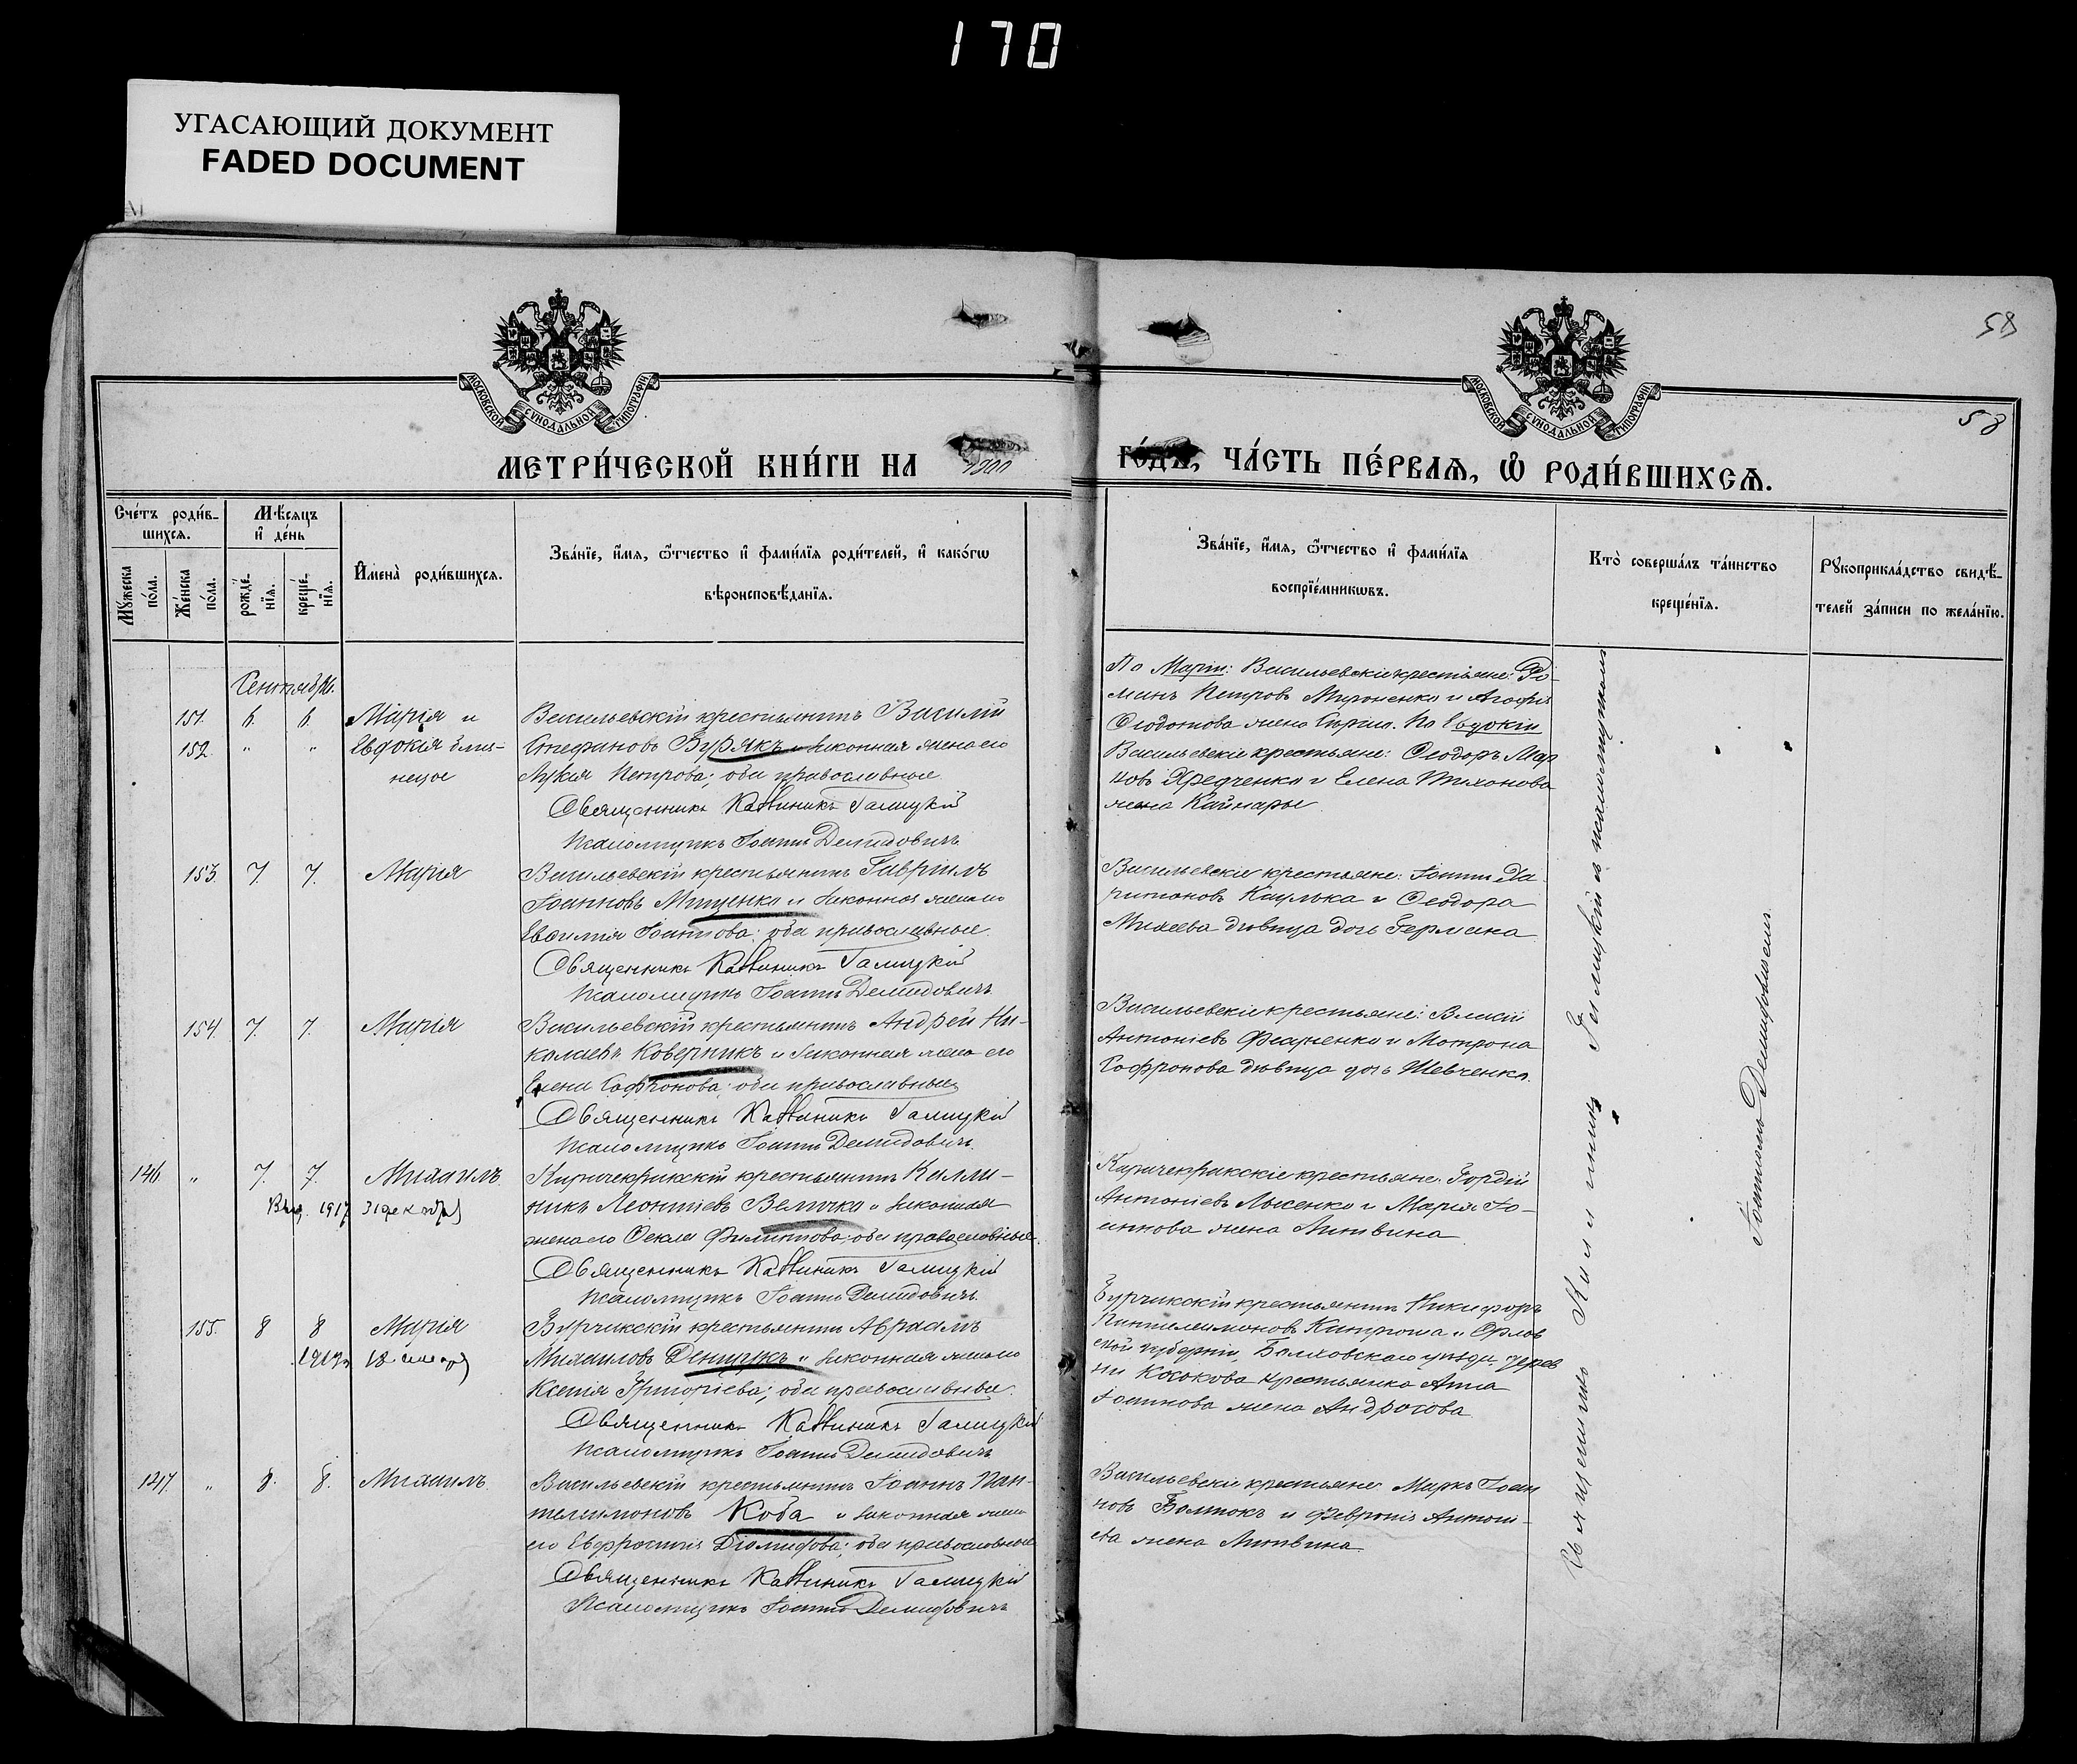 170
УГАСАЮЩИЙ ДОКУМЕНТ
FADED DOCUMENT
58
58
МОСКОВСКОЙ СУНОДАЛЬНОЙ ТИПОГРАФІИ
МОСКОВСКОЙ СУНОДАЛЬНОЙ ТИПОГРАФІИ
МЕТРИ́ЧЕСКОЙ КНИ́ГИ НА 1900
ГО́ДЪ, ЧА́СТЬ ПЕ́РВАѦ, Ѡ҆ РОДИ́ВШИХСѦ.
Сче́тъ роди́в-
шихсѧ.
Мꙋ́жеска по́ла.
Же́нска по́ла.
Мѣ́сѧцъ
и҆ де́нь
рожде́нїѧ.
креще́нїѧ.
И҆мена̀ роди́вшихсѧ.
Зва́нїе, и҆́мѧ, ѻ҆́тчество и҆ фами́лїѧ роди́телей, и҆ како́гѡ
вѣроисповѣ́данїѧ.
Зва́нїе, и҆́мѧ, ѻ҆́тчество и҆ фами́лїѧ
воспрїе́мникѡвъ.
Кто̀ соверша́лъ та́инство
креще́нїѧ.
Рꙋкоприкла́дство свидѣ́-
телей за́писи по жела́нїю.
Сентябрь.
151. 6. 6. Марія и
152. " " Евдокія близ-
нецы
Васильевскій крестьянинъ Василій
Стефановъ Бурякъ и законная жена его
Лукія Петрова; оба православные
Священникъ Каллиникъ Галицкій
Псаломщикъ Іоаннъ Демидовичъ
По Маріи: Васильевскіе крестьяне: Фо-
минъ Петровъ Мироненко и Агафія
Ѳеодотова жена Сыріца. По Евдокіи
Васильевскіе крестьяне: Ѳеодоръ Мар
ковъ Хредченко и Елена Тихонова
жена Кайнары
153. 7. 7. Марія
Васильевскій крестьянинъ Гавріилъ
Іоанновъ Мищенко и законная жена его
Евѳимія Іоаннова; оба православные.
Священникъ Каллиникъ Галицкій
Псаломщикъ Іоаннъ Демидовичъ
Васильевскіе крестьяне: Іоаннъ Ха
ритоновъ Каулька и Ѳеодора
Михеева дѣвица дочь Германа
154. 7. 7. Марія
Васильевскій крестьянинъ Андрей Ни-
колаевъ Коверникъ и законная жена его
Елена Софронова; оба православные
Священникъ Каллиникъ Галицкій
Псаломщикъ Іоаннъ Демидовичъ.
Васильевскіе крестьяне: Власій
Антоніевъ Федченко и Мотрона
Софронова дѣвица дочь Шевченко.
146. " 7. 7. Михаилъ
Выд. 1917 31 декабря
крестьянинъ Калли-
никъ Леонтіевъ Величко и законная
жена его Ѳекла Филиппова; оба православные.
Священникъ Каллиникъ Галицкій
Псаломщикъ Іоаннъ Демидовичъ.
крестьяне: Гордій
Антоніевъ Лысенко и Марія Іо-
аннова жена Литвина
155. 8 8 Марія
1919 г. 18 января
Бурчакскій крестьянинъ Авраамъ
Михаиловъ Денщукъ и законная жена его
Ксенія Григоріева; оба православные.
Священникъ Каллиникъ Галицкій
Псаломщикъ Іоаннъ Демидовичъ
Бурчакскій крестьянинъ Никифоръ
Пантелеимоновъ и Орлов
ской губерніи, Болховскаго уѣзда, дерев
ни крестьянка Анна
Іоаннова жена Андросова
147. " 8. 8. Михаилъ.
Васильевскій крестьянинъ Іоаннъ Пан-
телеимоновъ Коба и законная жена
его Евфросинія Діомидова; оба православные
Священникъ Каллиникъ Галицкій
Псаломщикъ Іоаннъ Демидовичъ
Васильевскіе крестьяне Маркъ Іоан
новъ Болтокъ и Февронія Антоні-
ева жена Литвина.
Священникъ Каллиникъ Галицкій съ псаломщикомъ
Іоанномъ Демидовичемъ